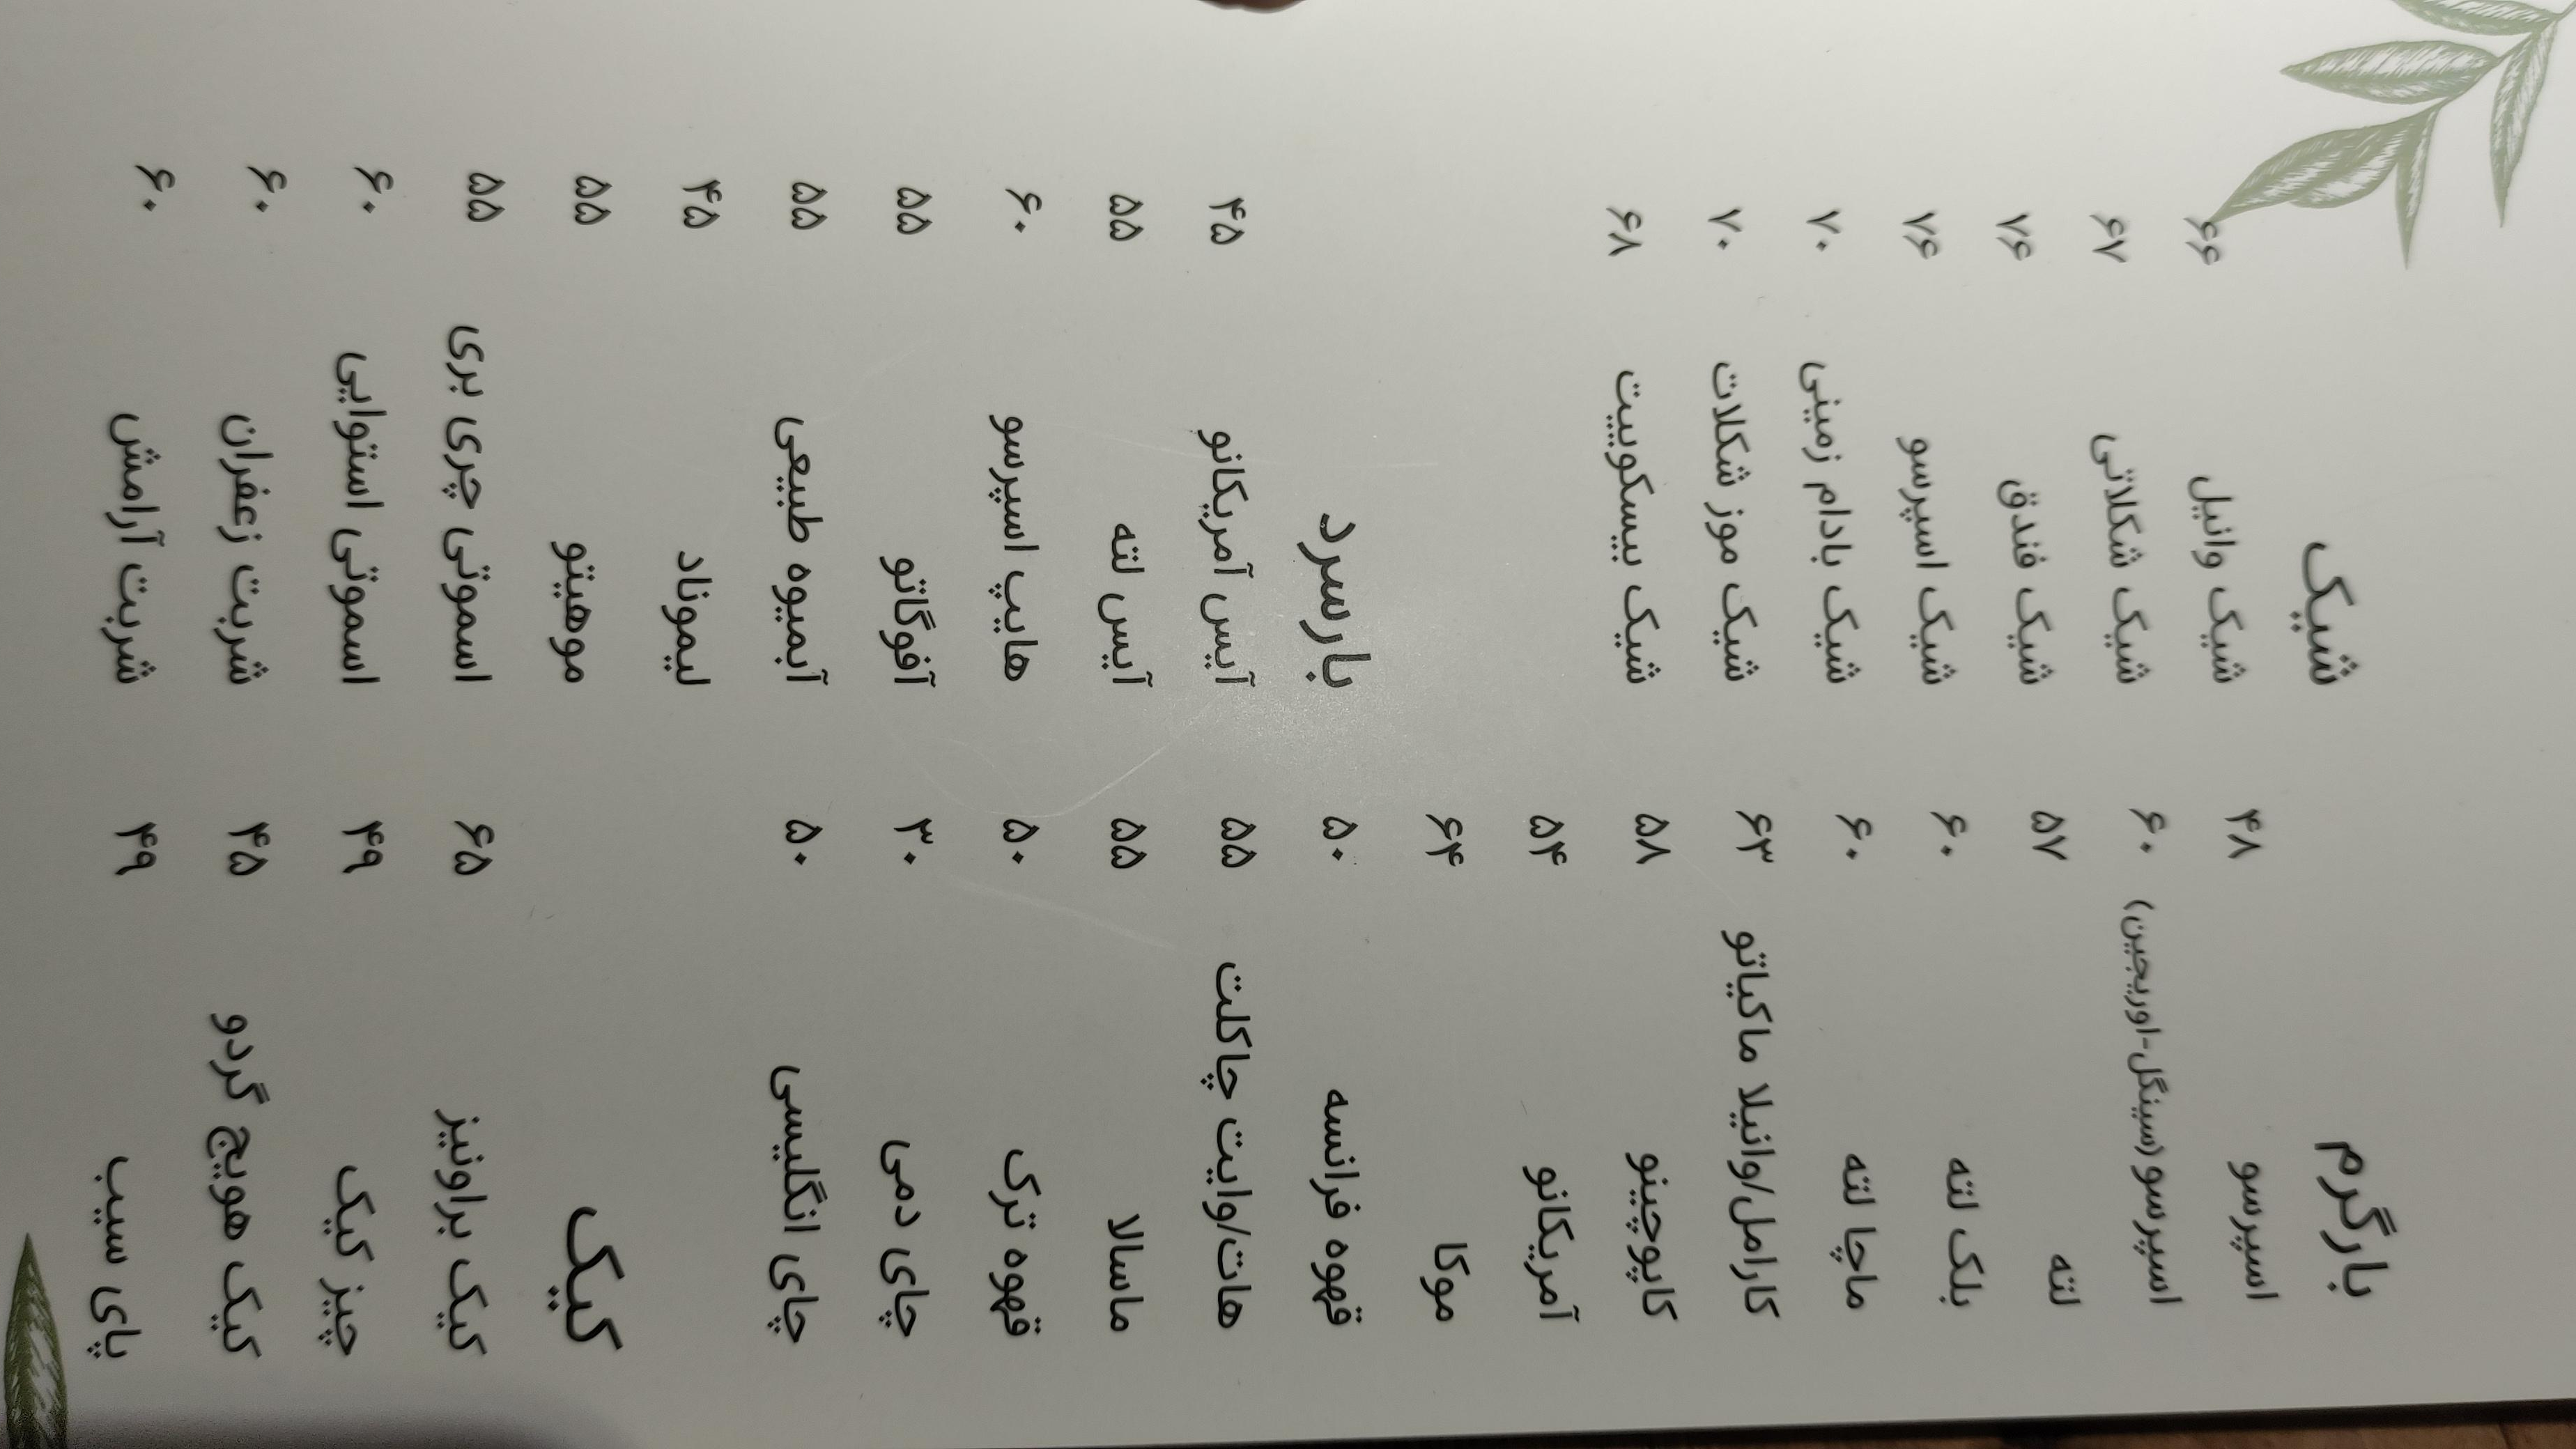 بارگرم
اسپرسو ۴۸
اسپرسو (سینگل-اوریجین) ۶۰
لته ۵۷
بلک لته ۶۰
ماچا لته ۶۰
کارامل/وانیلا ماکیاتو ۶۳
کاپوچینو ۵۸
آمریکانو ۵۴
موکا ۶۴
قهوه فرانسه ۵۰
هات/وایت چاکلت ۵۵
ماسالا ۵۵
قهوه ترک ۵۰
چای دمی ۳۰
چای انگلیسی ۵۰
کیک
کیک براونیز ۶۵
چیز کیک ۴۹
کیک هویج گردو ۴۵
پای سیب ۴۹
شیک
شیک وانیل ۶۶
شیک شکلاتی ۶۷
شیک فندق ۷۶
شیک اسپرسو ۷۶
شیک بادام زمینی ۷۰
شیک موز شکلات ۷۰
شیک بیسکوییت ۶۸
بارسرد
آیس آمریکانو ۴۵
آیس لته ۵۵
هایپ اسپرسو ۶۰
آفوگاتو ۵۵
آبمیوه طبیعی ۵۵
لیموناد ۴۵
موهیتو ۵۵
اسموتی چری بری ۵۵
اسموتی استوایی ۶۰
شربت زعفران ۶۰
شربت آرامش ۶۰